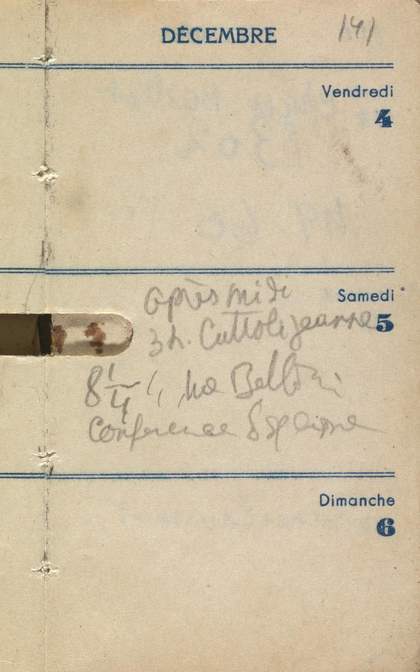 DÉCEMBRE
141
Vendredi
4
Samedi
5
après midi
3h. Cuttoli Jeanne
8 1/4
Conference Espagne
Dimanche
6